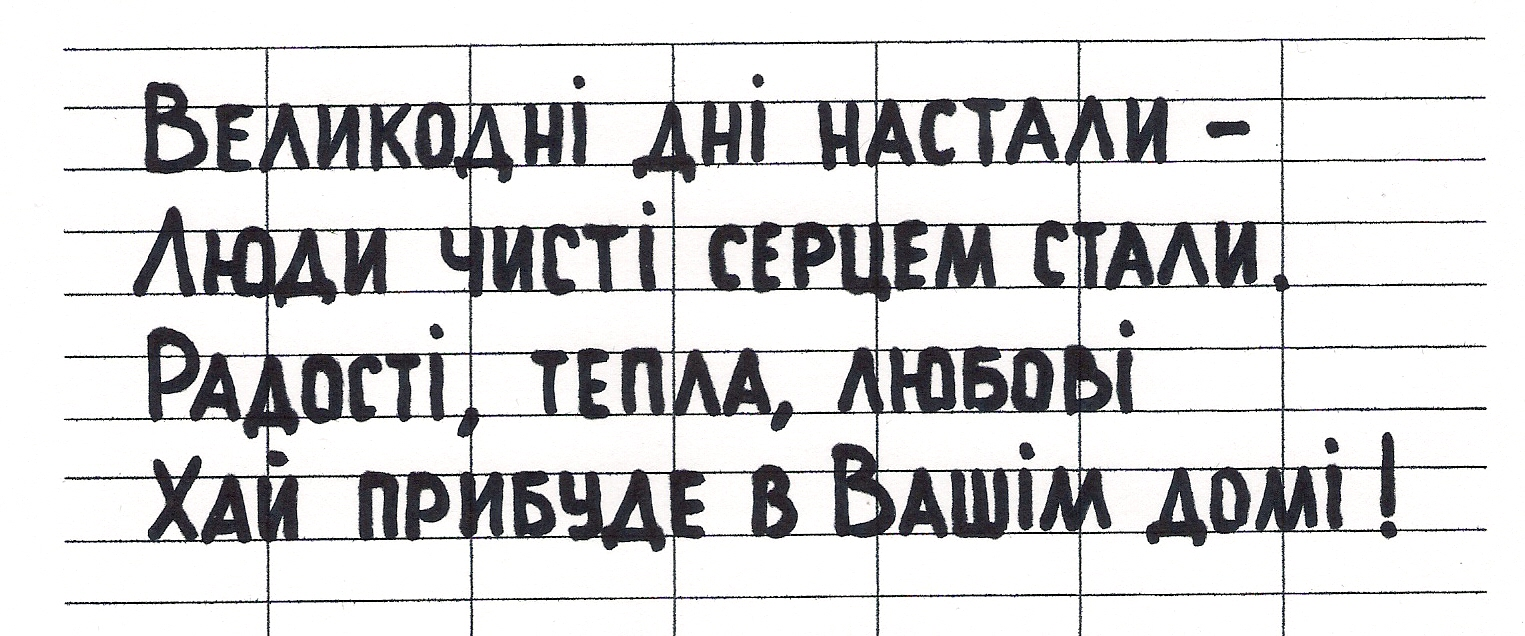 Великодні дні настали -
Люди чисті серцем стали.
Радості, тепла, любові
Хай прибуде в Вашім домі!